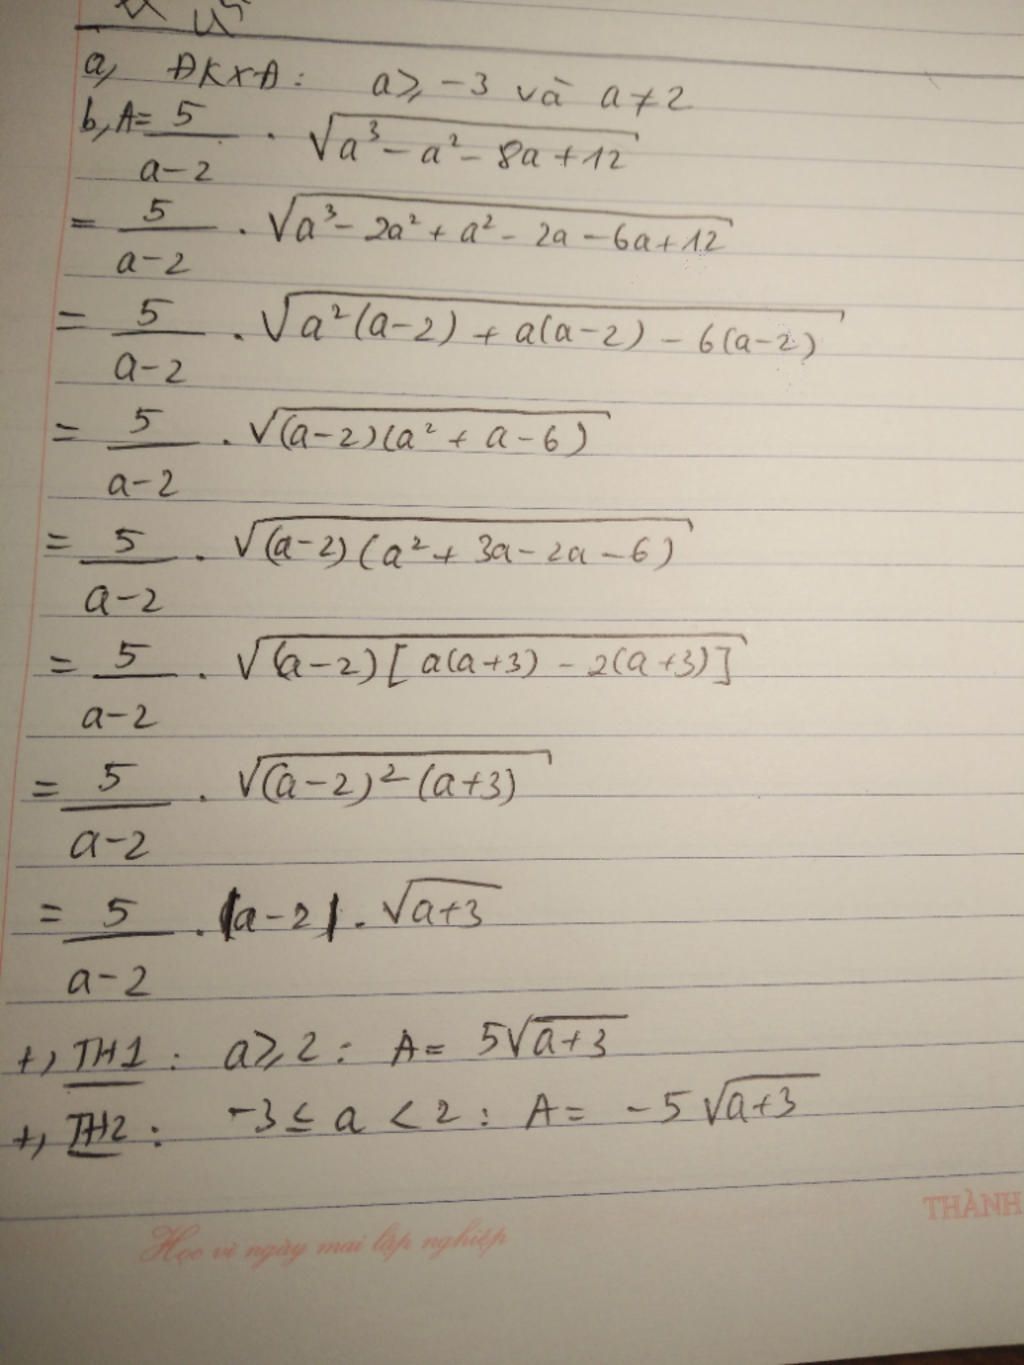 a, ĐKXĐ: a ≥ -3 và a ≠ 2
b, A = 5/(a-2) . √(a³ - a² - 8a + 12)
= 5/(a-2) . √(a³ - 2a² + a² - 2a - 6a + 12)
= 5/(a-2) . √(a²(a-2) + a(a-2) - 6(a-2))
= 5/(a-2) . √((a-2)(a² + a - 6))
= 5/(a-2) . √((a-2)(a² + 3a - 2a - 6))
= 5/(a-2) . √((a-2)[a(a+3) - 2(a+3)])
= 5/(a-2) . √((a-2)²(a+3))
= 5/(a-2) . |a-2| . √(a+3)
+, TH1: a ≥ 2: A = 5√(a+3)
+, TH2: -3 ≤ a < 2: A = -5√(a+3)
THÀNH
Học vì ngày mai lập nghiệp